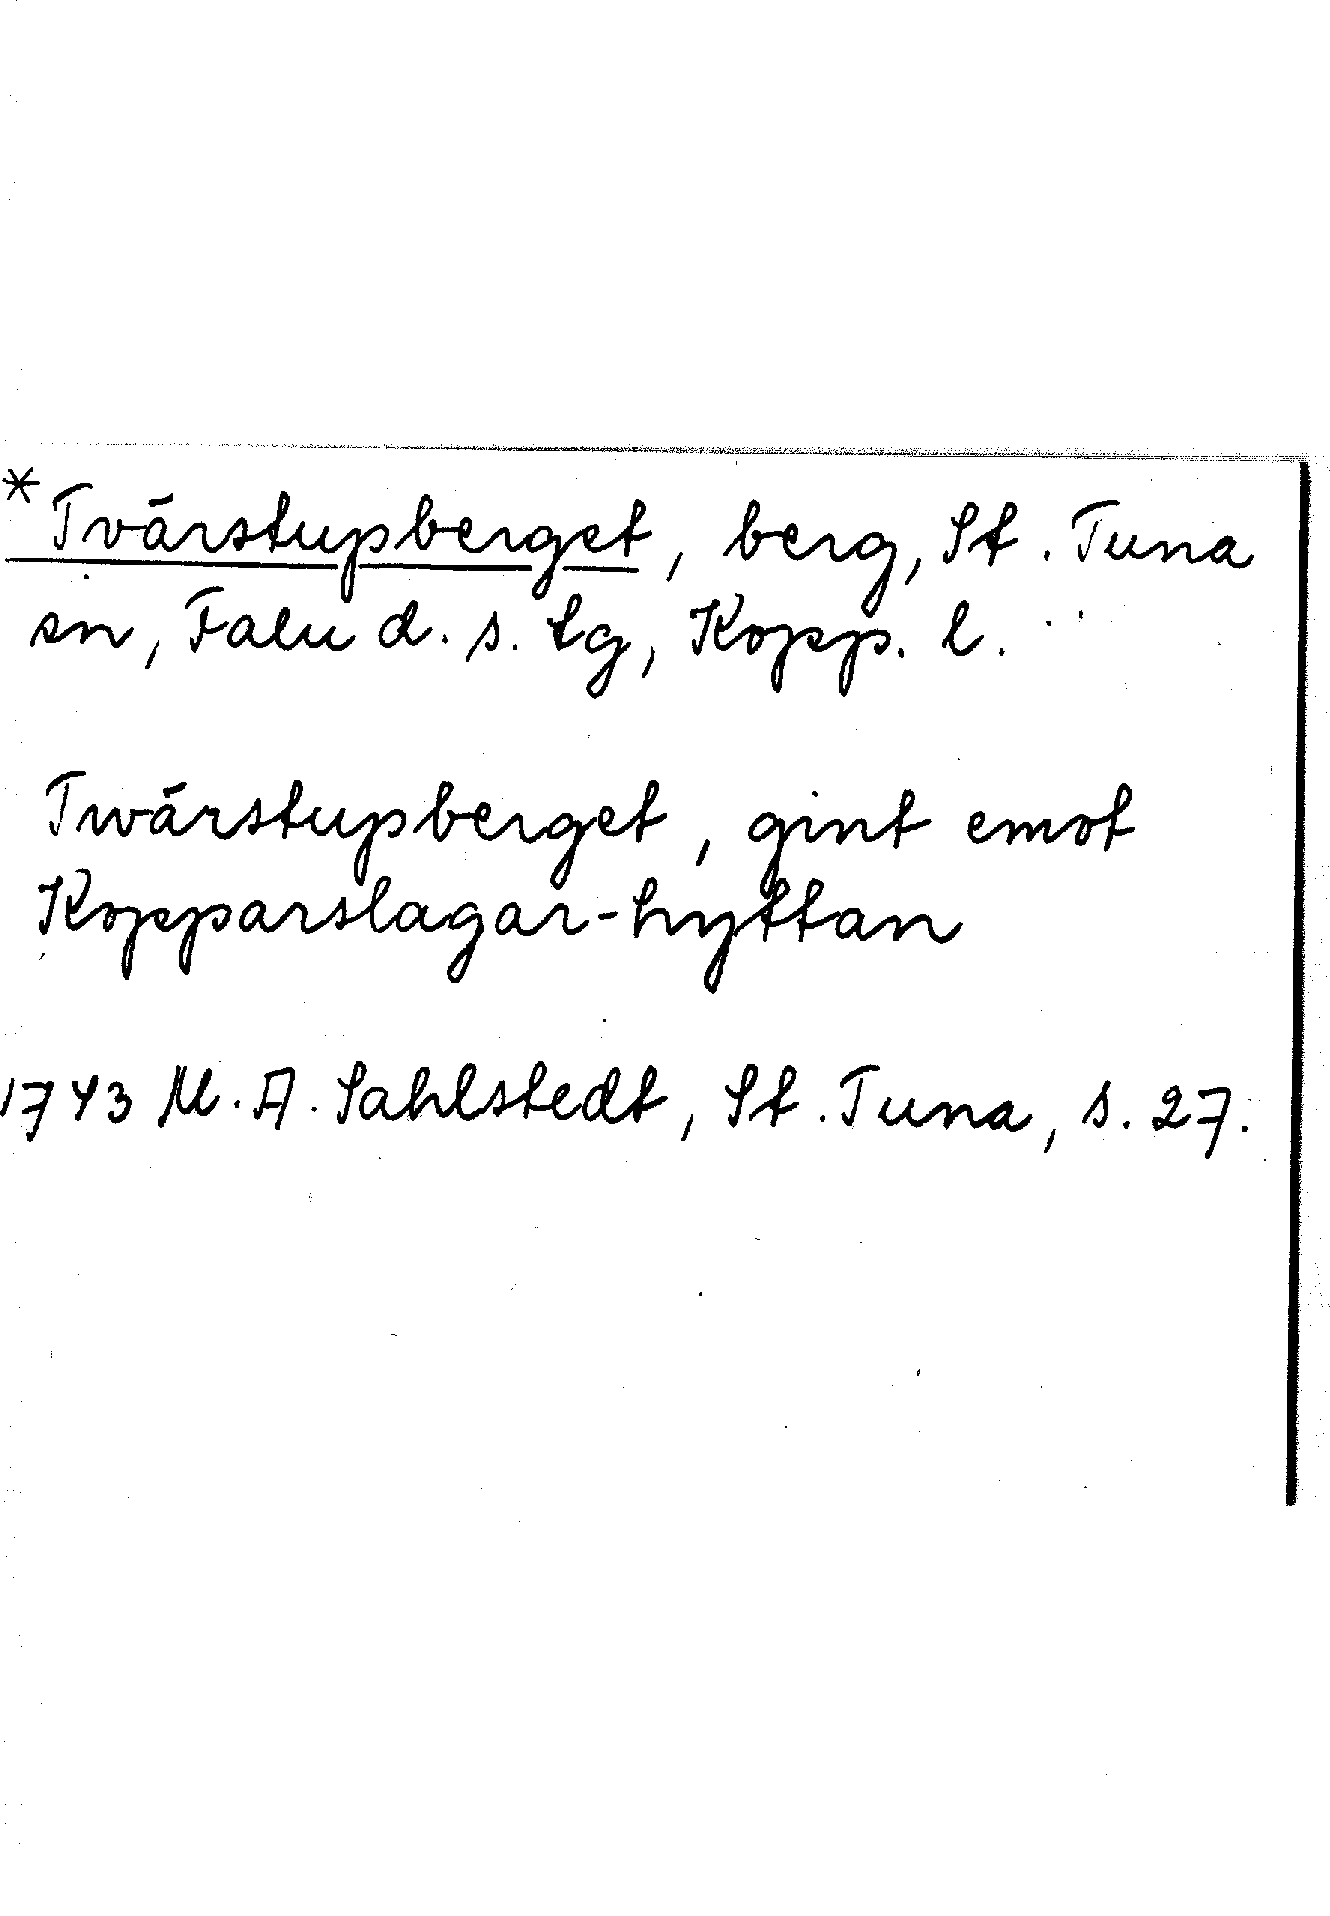 *Tvärstupberget, berg, St. Tuna
sn, Falu d. s. tg, Kopp. l.
Twärstupberget, gint emot
Kopparslagar-hyttan
1743 M. A. Sahlstedt, St. Tuna, s. 27.